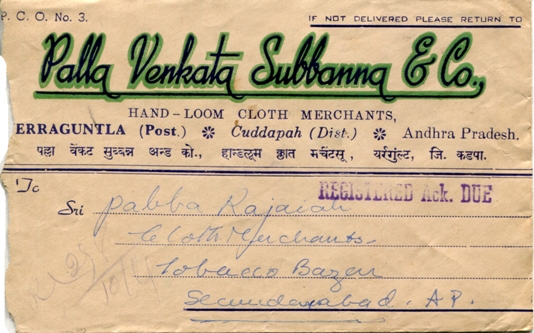 P. C. O. No. 3.
IF NOT DELIVERED PLEASE RETURN TO
Palla Venkata Subbanna & Co.,
HAND-LOOM CLOTH MERCHANTS,
ERRAGUNTLA (Post.) ❋ Cuddapah (Dist.) ❋ Andhra Pradesh.
पल्ला वेंकट सुब्बन्न अन्ड को., हान्डलूम क्लात मर्चेंटस्, यर्रगुंट्ल, जि. कडपा.
REGISTERED Ack. DUE
To
Sri Pabba Rajaiah
Cloth Merchants
Tobacco Bazar
Secunderabad. A.P.